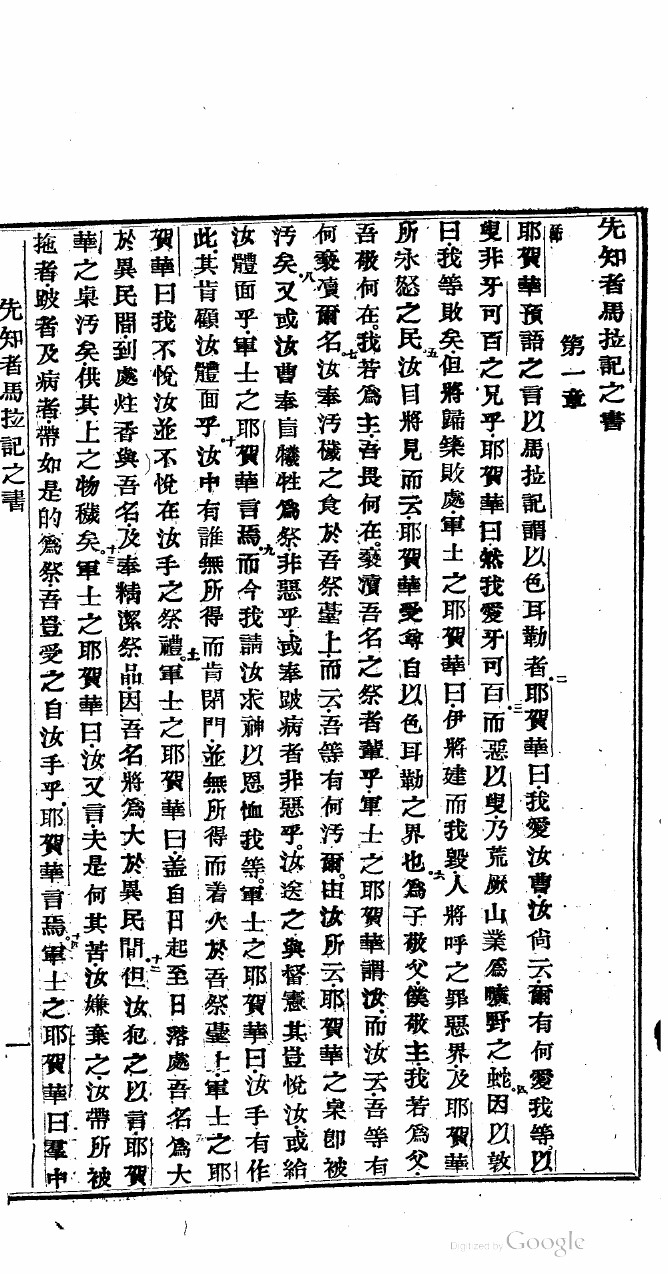 先知者馬拉記之書
第一章
一節
耶賀華預語之言以馬拉記謂以色耳勒者二耶賀華曰我愛汝曹汝尚云爾有何愛我等以
叟非牙可百之兄乎耶賀華曰然我愛牙可百三而惡以叟乃荒厥山業為曠野之蛇四因以敦
曰我等敗矣但將歸築敗處軍士之耶賀華曰伊將建而我毀人將呼之罪惡界及耶賀華
所永怒之民五汝目將見而云耶賀華受尊自以色耳勒之界也六為子敬父僕敬主我若為父
吾敬何在我若為主吾畏何在褻瀆吾名之祭者輩乎軍士之耶賀華謂汝而汝云吾等有
何褻瀆爾名七汝奉汚穢之食於吾祭臺上而云吾等有何汚爾由汝所云耶賀華之桌即被
汚矣八又或汝曹奉盲犧牲為祭非惡乎或奉跛病者非惡乎汝送之與督憲其豈悅汝或給
汝體面乎軍士之耶賀華言焉九而今我請汝求神以恩恤我等軍士之耶賀華曰汝手有作
此其肯顧汝體面乎十汝中有誰無所得而肯閉門並無所得而着火於吾祭臺上軍士之耶
賀華曰我不悅汝並不悅在汝手之祭禮十一軍士之耶賀華曰蓋自日起至日落處吾名為大
於異民間到處炷香與吾名及奉精潔祭品因吾名將為大於異民間十二但汝犯之以言耶賀
華之桌汚矣供其上之物穢矣十三軍士之耶賀華曰汝又言夫是何其苦汝嫌棄之汝帶所被
拖者跛者及病者帶如是的為祭吾豈受之自汝手乎耶賀華言焉十四軍士之耶賀華曰羣中
先知者馬拉記之書
一
Digitized by Google